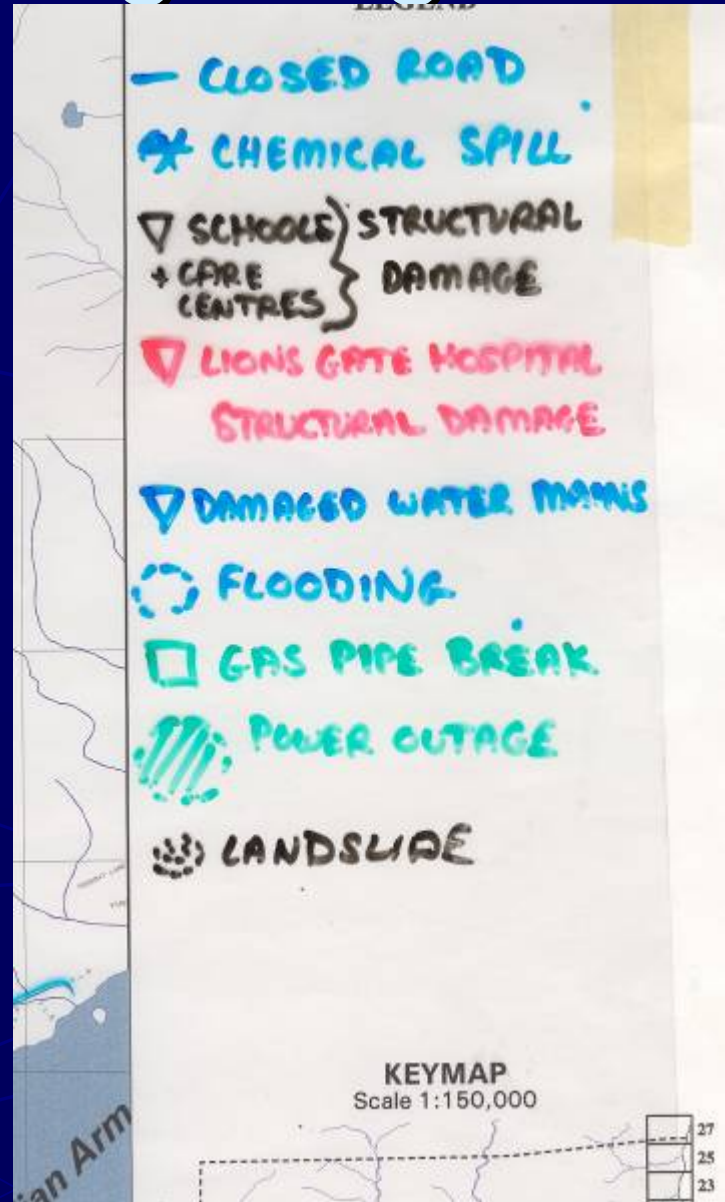 LEGEND
CLOSED ROAD
CHEMICAL SPILL
SCHOOLS } STRUCTURAL
+ CARE DAMAGE
CENTRES
LIONS GATE HOSPITAL
STRUCTURAL DAMAGE
DAMAGED WATER MAINS
FLOODING
GAS PIPE BREAK
POWER OUTAGE
LANDSLIDE
KEYMAP
Scale 1:150,000
27
25
23
ian Arm